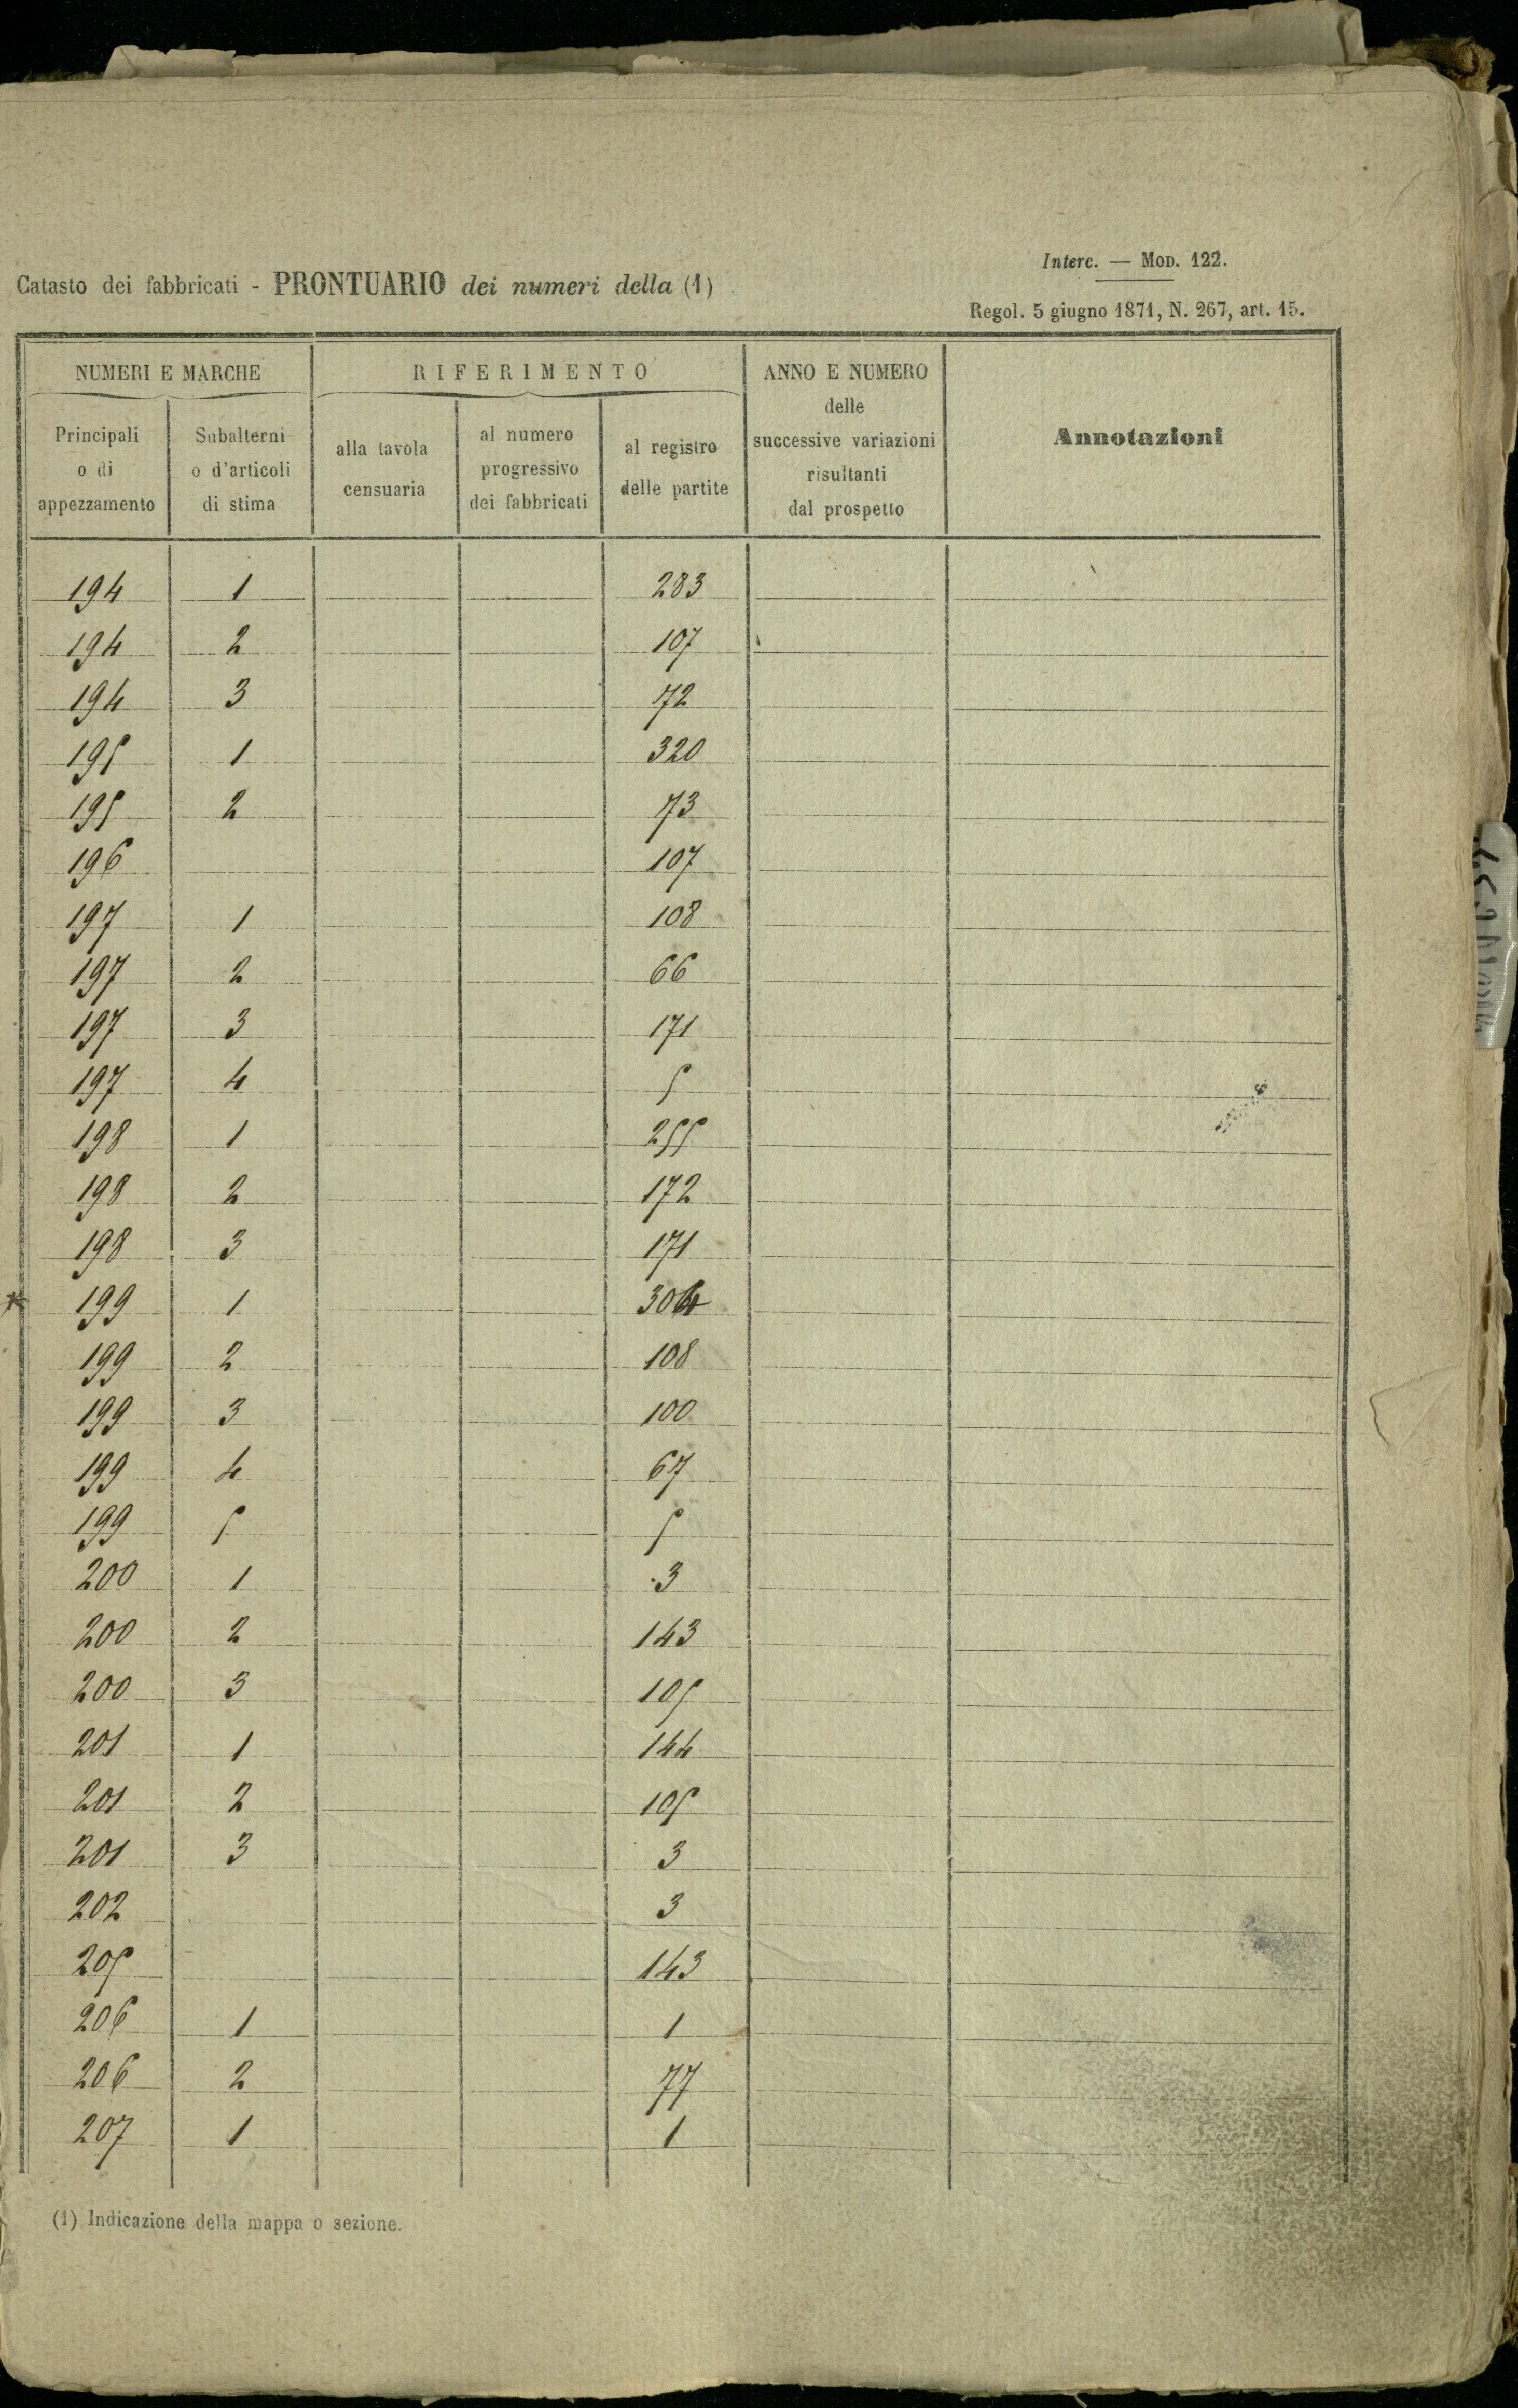 Interc. — Mod. 122.
Catasto dei fabbricati - PRONTUARIO dei numeri della (1)
Regol. 5 giugno 1871, N. 267, art. 15.
NUMERI E MARCHE
Principali
o di
appezzamento
Subalterni
o d'articoli
di stima
RIFERIMENTO
alla tavola
censuaria
al numero
progressivo
dei fabbricati
al registro
delle partite
ANNO E NUMERO
delle
successive variazioni
risultanti
dal prospetto
Annotazioni
194 1 283
194 2 107
194 3 72
195 1 320
195 2 73
196 107
197 1 108
197 2 66
197 3 171
197 4 5
198 1 255
198 2 172
198 3 171
199 1
199 2 108
199 3 100
199 4 67
199 5 5
200 1 3
200 2 143
200 3 105
201 1 144
201 2 105
201 3 3
202 3
205 143
206 1 1
206 2 77
207 1 1
(1) Indicazione della mappa o sezione.